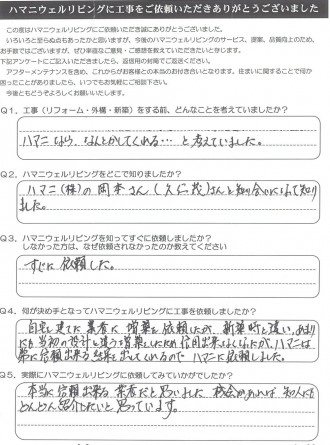 ハマニウェルリビングに工事をご依頼いただきありがとうございました
この度はハマニウェルリビングにご依頼いただき誠にありがとうございました。
いろいろと至らぬ点もあったかと思いますが、今後のハマニウェルリビングのサービス、提案、品質向上のため、
お手数ではございますが、ぜひ率直なご意見・ご感想を教えていただきたいとかします。
下記アンケートにご記入いただきましたら、返信用の封筒でご返送ください。
アフターメンテナンスを含め、これからがお客様との本当のお付き合いとなります。住まいに関することで何か
困ったことがありましたら、いつでもお気軽にご相談下さい。
今後ともどうぞよろしくお願いいたします。
Q1、工事（リフォーム・外構・新築）をする前、どんなことを考えていましたか？
ハマニなら、なんとかしてくれる… と考えていました。
Q2、ハマニウェルリビングをどこで知りましたか？
ハマニ(株)の岡本さん (久仁茂)さんと知り合いになって知り
ました。
Q3、ハマニウェルリビングを知ってすぐに依頼しましたか？
しなかった方は、なぜ依頼されなかったのか教えてください
すぐに依頼した。
Q4、何が決め手となってハマニウェルリビングに工事を依頼しましたか？
自宅を建てた業者に増築を依頼したが、新築時と違い、あまり
にも当初の設計と違う増築をしたため信用出来なくなったが、ハマニは
常に信頼出来る結果を出してくれるので ハマニに依頼しました。
Q5、実際にハマニウェルリビングに依頼してみていかがでしたか？
本当に信頼出来る業者だと思いました 機会があれば知人にも
どんどん紹介したいと思っています。